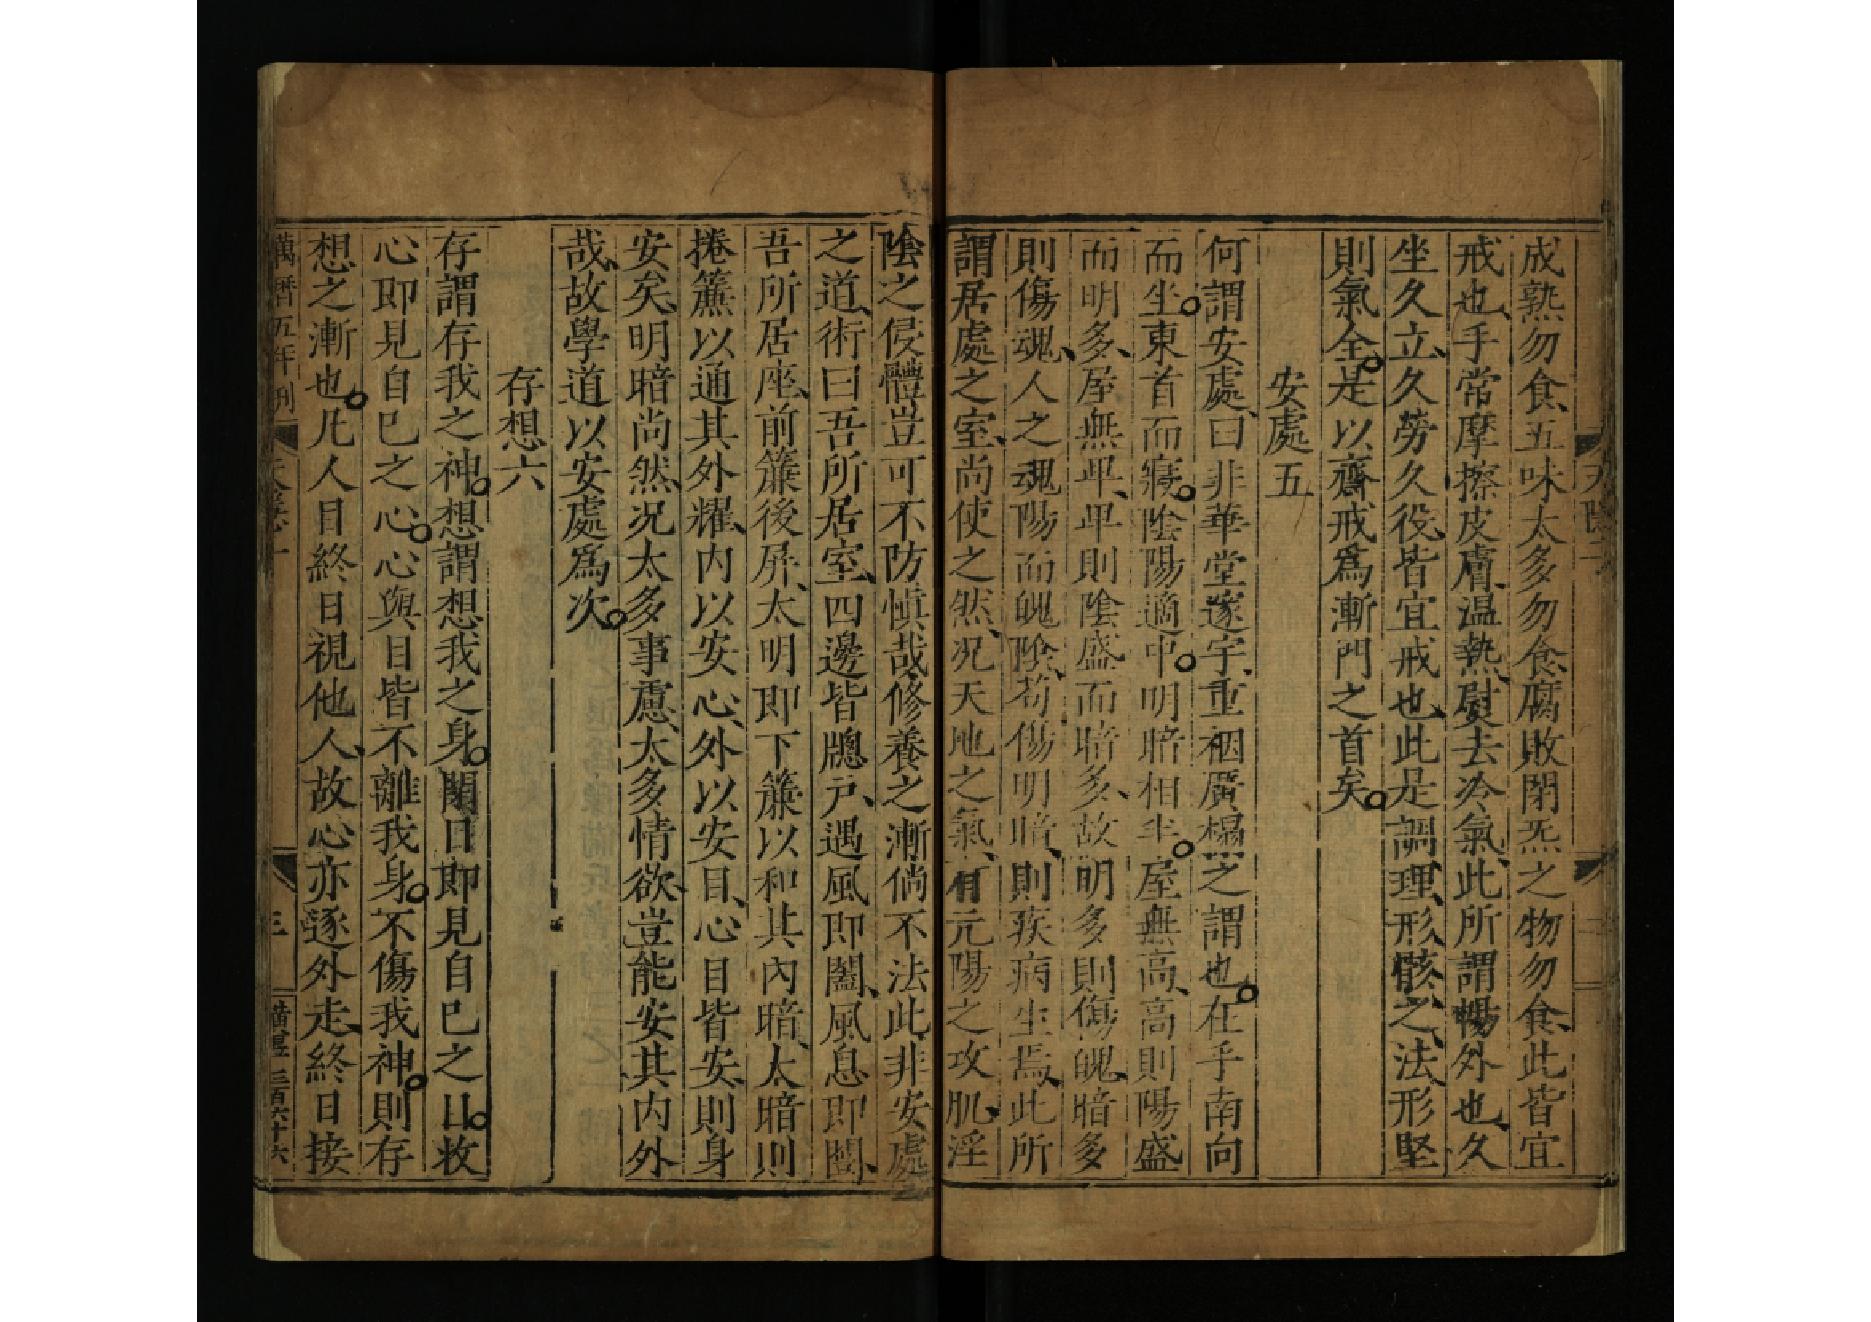 成熟勿食五味太多勿食腐敗閉炁之物勿食此皆宜
戒也手常摩擦皮膚温熱熨去冷氣此所謂暢外也久
坐久立久勞久役皆宜戒也此是調理形骸之法形堅
則氣全是以齋戒爲漸門之首矣
安處五
何謂安處曰非華堂邃宇重裀廣榻之謂也在乎南向
而坐東首而寢陰陽適中明暗相半屋無高高則陽盛
而明多屋無卑卑則陰盛而暗多故明多則傷魄暗多
則傷魂人之魂陽而魄陰苟傷明暗則疾病生焉此所
謂居處之室尚使之然况天地之氣有元陽之攻肌淫
陰之侵體豈可不防慎哉修養之漸倘不法此非安處
之道術曰吾所居室四邊皆牎戶遇風即闔風息即闢
吾所居座前簾後屏太明即下簾以和其內暗太暗則
捲簾以通其外耀內以安心外以安目心目皆安則身
安矣明暗尚然况太多事慮太多情欲豈能安其内外
哉故學道以安處爲次
存想六
存謂存我之神想謂想我之身閉目即見自己之目收
心即見自己之心心與目皆不離我身不傷我神則存
想之漸也凡人目終日視他人故心亦逐外走終日接
萬暦五年刋
三
三百六十六